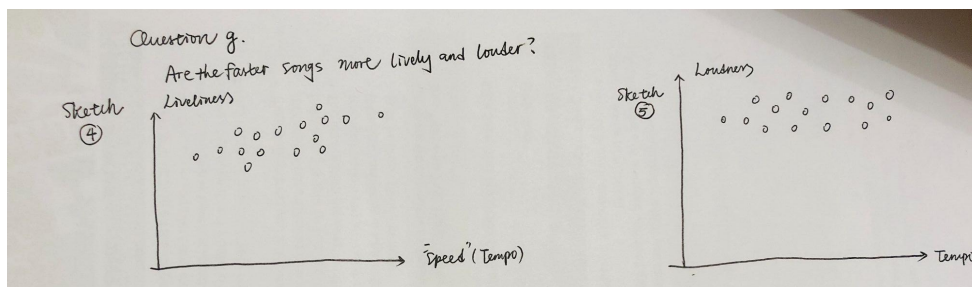 Question g.
Are the faster songs more lively and louder?
Sketch
④
Liveliness
"Speed" (Tempo)
Sketch
⑤
Loudness
Tempo